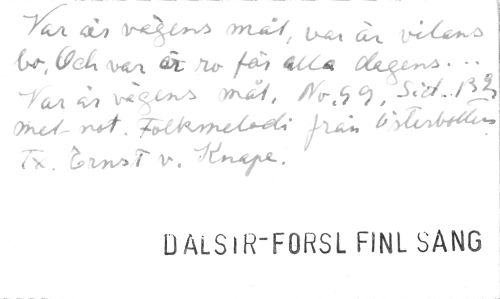 Var är vägens mål, var är vilans
bo, Och var är ro för alla dagens...
Var är vägens mål. No. 99, Sid. 132
met not. Folkmelodi från Österbotten
Tx. Ernst v. Knape.
DALSTR-FORSL FINL SANG